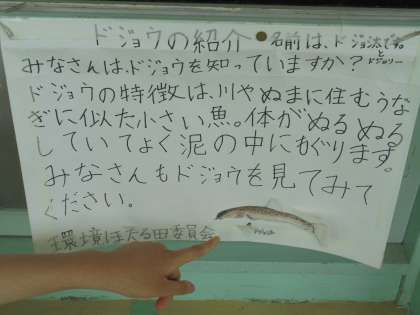 ドジョウの紹介 ●名前は、ドジョ汰です。
とドジョリー
みなさんは、ドジョウを知っていますか？
ドジョウの特徴は、川やぬまに住むうな
ぎに似た小さい魚。体がぬるぬる
していてよく泥の中にもぐります。
みなさんもドジョウを見てみて
ください。
環境ほたる田委員会